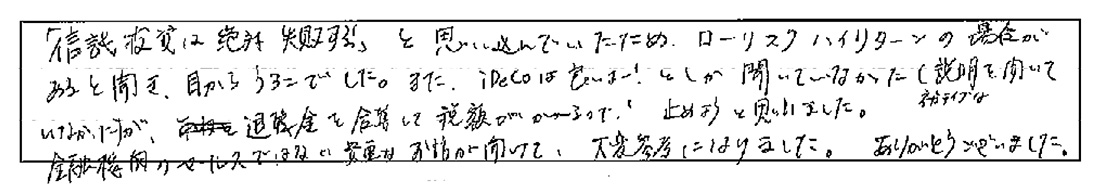 「信託投資は絶対失敗する」と思い込んでいたため、ローリスクハイリターンの場合が
あると聞き、目からうろこでした。また、iDeCoは良いよ!としか聞いていなかった(説明を聞いて
いなかった)が、退職金と合算して税額がかかるので!止めようと思いました。ネガティブな
金融機関のセールスではない貴重なお話が聞けて、大変参考になりました。ありがとうございました。